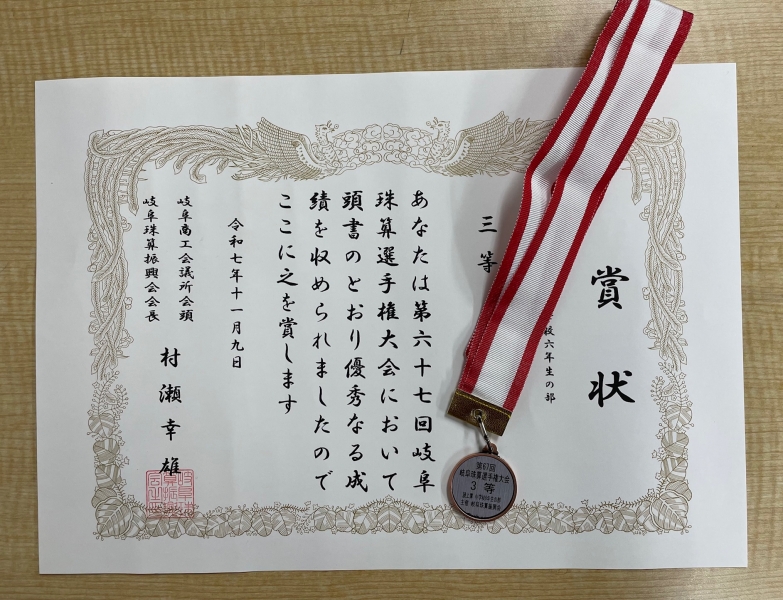 賞状
校六年生の部
三等
あなたは第六十七回岐阜
珠算選手権大会において
頭書のとおり優秀なる成
績を収められましたので
ここに之を賞します
令和七年十一月九日
岐阜商工会議所会頭
岐阜珠算振興会会長
村瀬幸雄
第67回
岐阜珠算選手権大会
3等